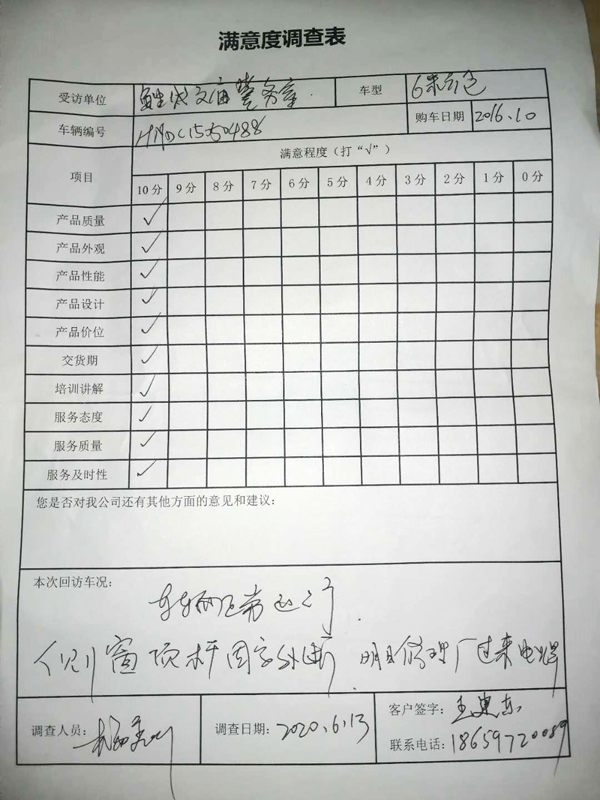 满意度调查表
受访单位 鲤城文庙警务室 车型 6米
车辆编号 购车日期 2016.10
项目 满意程度（打“√”）
10分 9分 8分 7分 6分 5分 4分 3分 2分 1分 0分
产品质量 √
产品外观 √
产品性能 √
产品设计 √
产品价位 √
交货期 √
培训讲解 √
服务态度 √
服务质量 √
服务及时性 √
您是否对我公司还有其他方面的意见和建议：
本次回访车况：
车辆正常运行.
侧窗顶杆固定处断 明日修理厂过来电焊
调查人员： 调查日期：2020.6.13 客户签字：
联系电话：18659720089